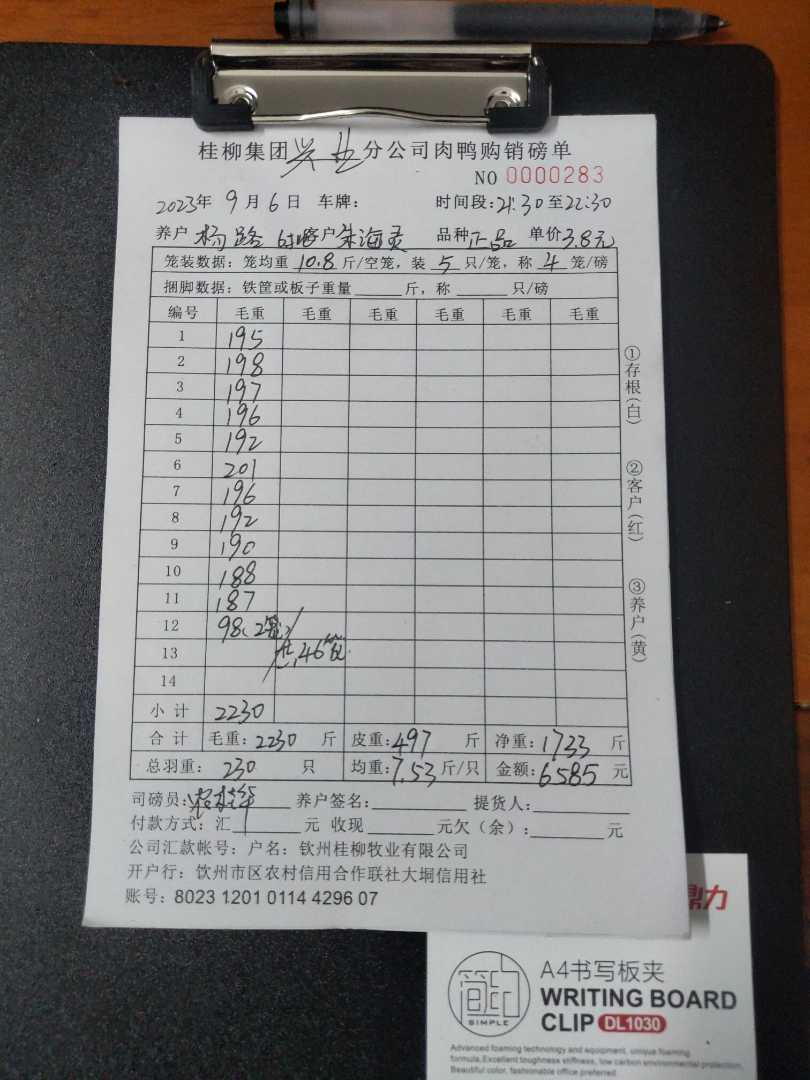 桂柳集团兴业分公司肉鸭购销磅单
NO 0000283
2023年 9 月 6 日 车牌: 时间段: 21:30 至 22:30
养户 杨路 客户 朱海 品种 正品 单价 3.8元
笼装数据: 笼均重 10.8 斤/空笼, 装 5 只/笼, 称 4 笼/磅
捆脚数据: 铁筐或板子重量 斤, 称 只/磅
编号 毛重 毛重 毛重 毛重 毛重 毛重
1 195
2 198
3 197
4 196
5 192
6 201
7 196
8 192
9 190
10 188
11 187
12 98(2笼)
13 共46笼
14
小计 2230
合计 毛重: 2230 斤 皮重: 497 斤 净重: 1733 斤
总羽重: 230 只 均重: 7.53 斤/只 金额: 6585 元
司磅员: 养户签名: 提货人:
付款方式: 汇 元 收现 元欠(余): 元
公司汇款帐号: 户名: 钦州桂柳牧业有限公司
开户行: 饮州市区农村信用合作联社大垌信用社
账号: 8023 1201 0114 4296 07
①存根(白)
②客户(红)
③养户(黄)
鼎力
简印
SIMPLE
A4书写板夹
WRITING BOARD
CLIP DL1030
Advanced foaming technology and equipment, unique foaming
formula,Excellent toughness stiffness, low carbon environmental protection,
Beautiful color, fashionable office preferred